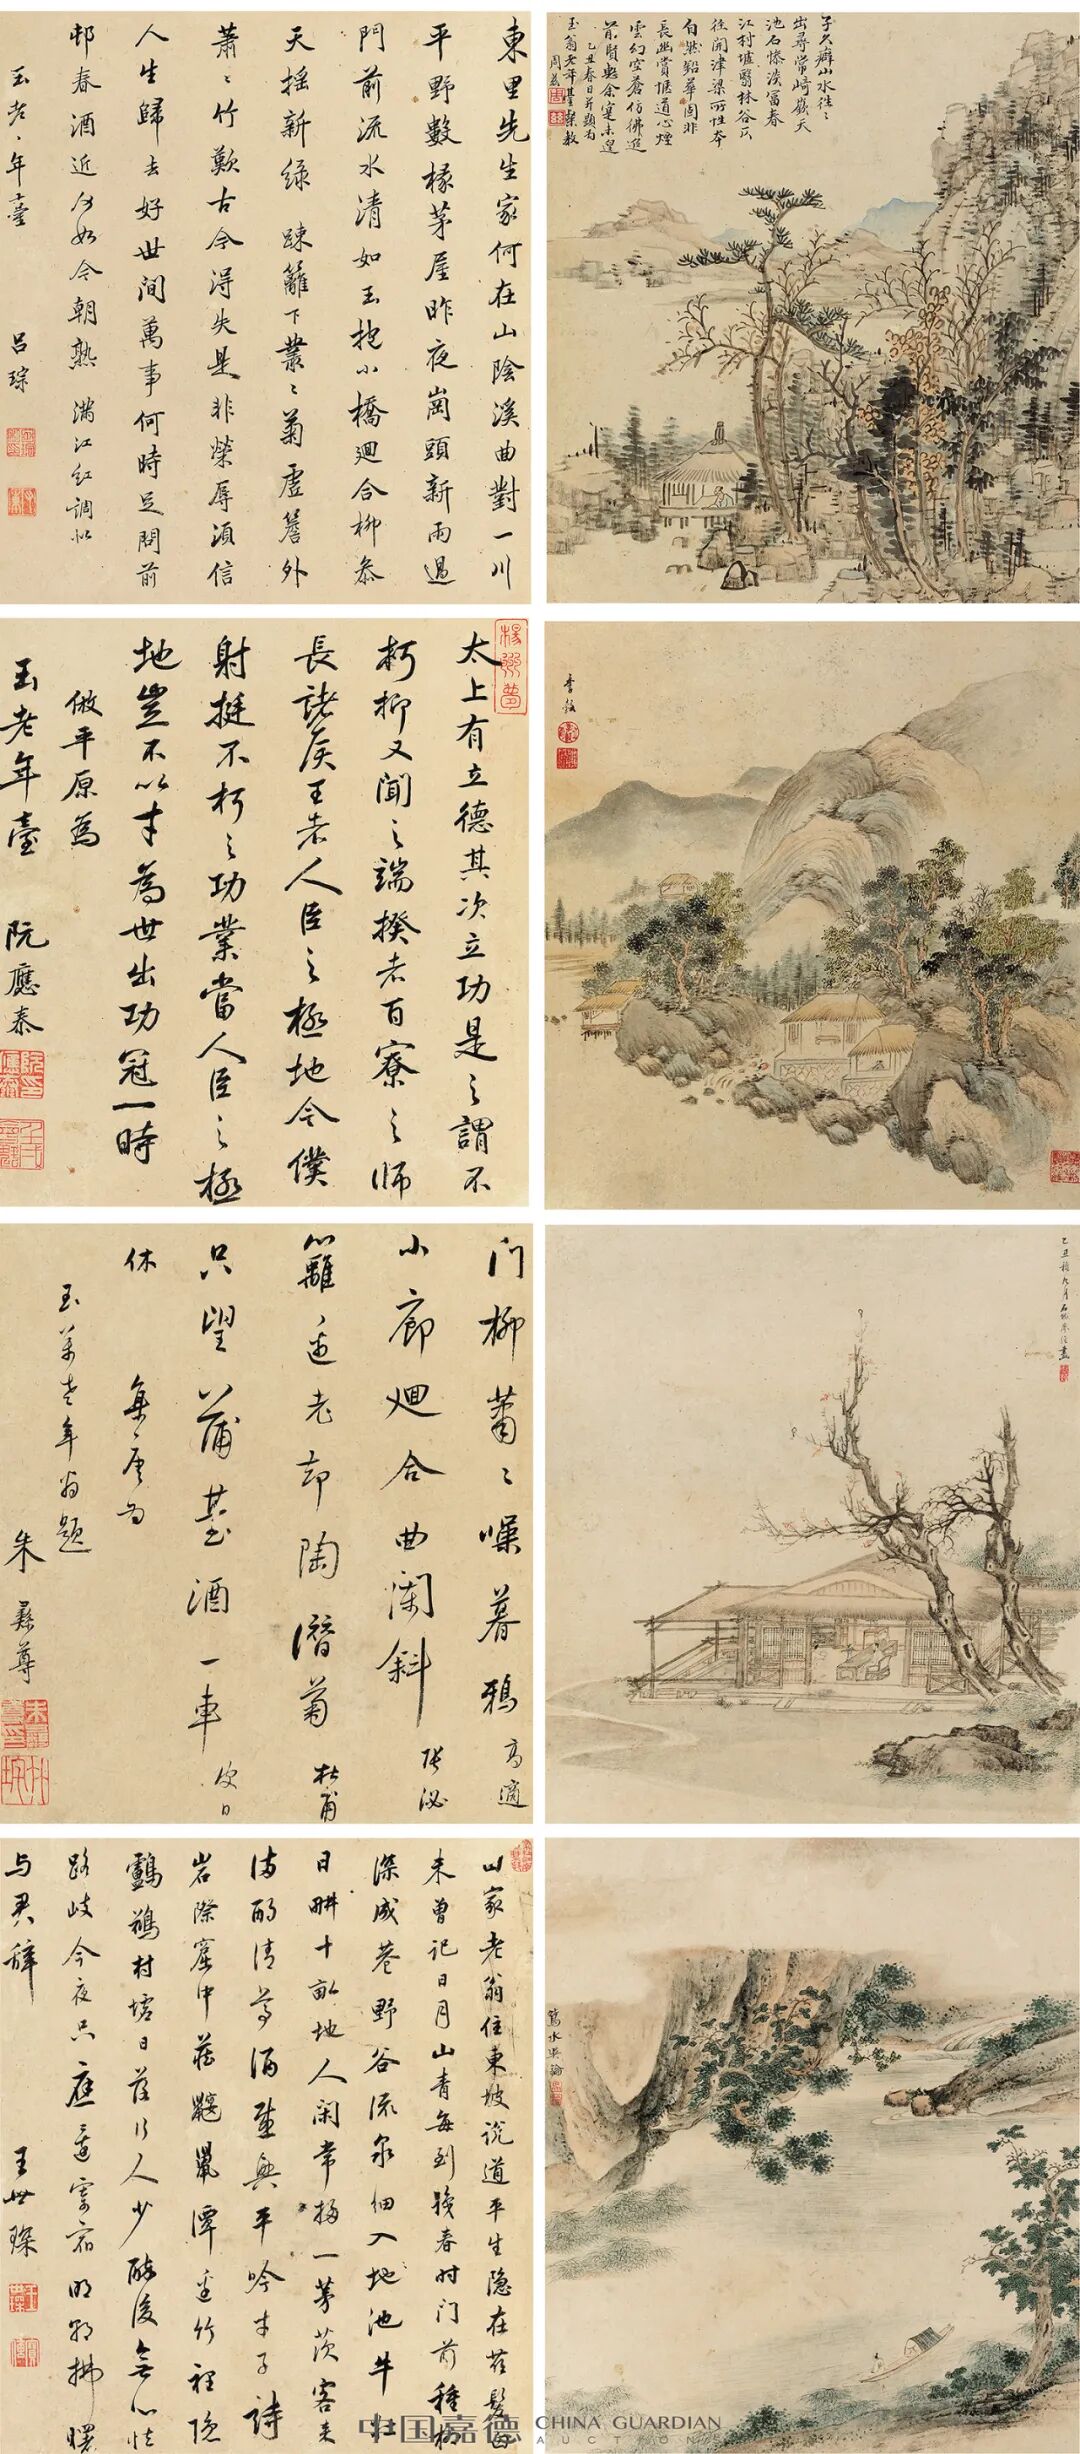 東里先生家何在山陰溪曲對一川
平野數椽茅屋昨夜崗頭新雨過
門前流水清如玉抱小橋廻合柳叅
天搖新綠 踈籬下叢〻菊虛簷外
蕭〻竹歎古今得失是非榮辱須信
人生歸去好世間萬事何時足問前
邨春酒近何如今朝熟 滿江紅調似
玉老〻年臺 呂琮
子久癖山水往〻
出尋常崎嶔天
池石慘淡富春
江村墟翳林谷
徑開津梁所性本
自然鉛華固非
長幽賞愜道心煙
雲幻空蒼仿彿追
前賢興余寔未遑
乙丑春日并題為
玉翁老年臺粲教
周兹
太上有立德其次立功是之謂不
朽抑又聞之端揆者百寮之師
長諸侯王者人臣之極地今僕
射挺不朽之功業當人臣之極
地豈不以才為世出功冠一時
倣平原為
玉老年臺 阮應泰
門柳蕭〻噪暮鴉 高適
小廊廻合曲闌斜 張泌
籬邊老却陶潛菊 杜甫
只望蒲臺酒一車 皮日
休
集唐為
玉翁老年翁題
朱彝尊
乙丑
九月石城
畫
山家老翁住東坡說道平生隐在茲髮白
未曾记日月山青每到晚春时门前種柳
深成巷野谷流泉细入地池牛壮
日畊十亩地人闲常掃一茅茨客来
满酌清尊酒感興平吟才子詩
岩際窟中藏鼹鼠潭邊竹裡隐
鸕鷀村墟日落行人少醉後無心怯
路歧今夜只應還寄宿明朝拂曙
与君辞 王世琛
中国嘉德 CHINA GUARDIAN
AUCTIONS